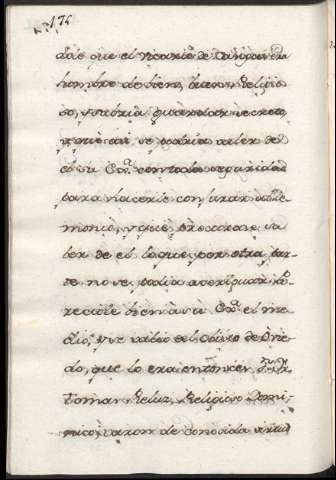 174
dole que el Vicario de Cangas era
hombre de bien, buen Religio
so, y sabria guardar secreto,
y que asi se podria valer de
el su Ex.ª con toda seguridad
para hacerle conjurar al de
monio, y que procurase sa
ber de el lo que por otra par
te no se podia averiguar.
recivio bien su Ex.ª el me
dio, y se valio del Obispo de Ovie
do, que lo era entonces
Tomas Reluz, Religioso Domi
nico, varon de conocida virtud